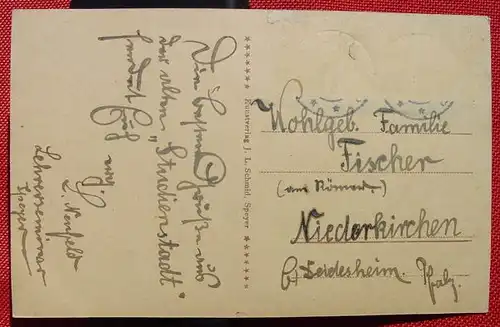 Die besten Grüße aus
der alten „Studienstadt"
sendet Euch
L. Neufeld
Lehrerseminar
Speyer
******* Kunstverlag J. L. Schmid, Speyer *******
Wohlgeb. Familie
Fischer
(am Römer.)
Niederkirchen
b/ Deidesheim. Pfalz.